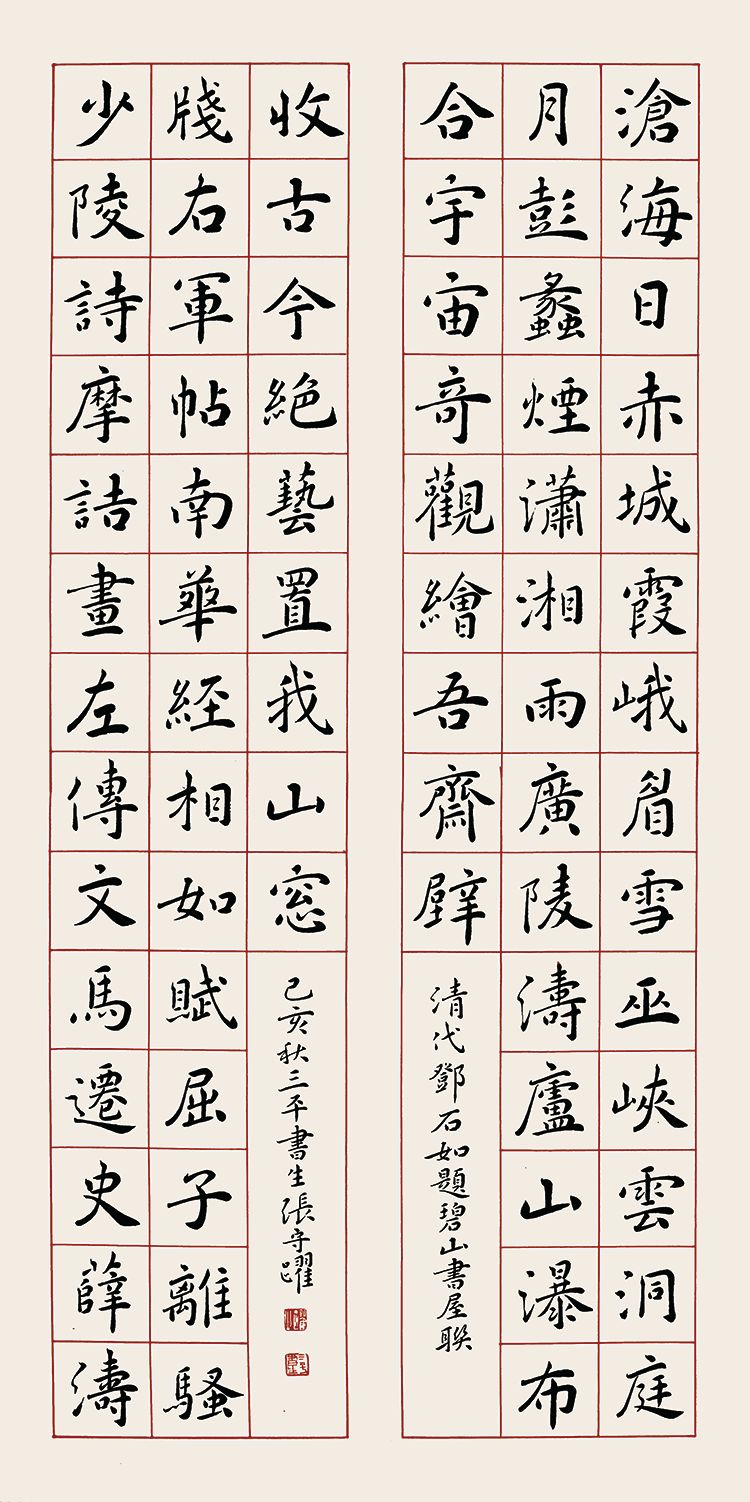 滄海日赤城霞峨眉雪巫峽雲洞庭
月彭蠡煙瀟湘雨廣陵濤廬山瀑布
合宇宙奇觀繪吾齋壁
清代鄧石如題碧山書屋聯
少陵詩摩詰畫左傳文馬遷史薛濤
牋右軍帖南華經相如賦屈子離騷
收古今絶藝置我山窓
己亥秋三平書生張守躍